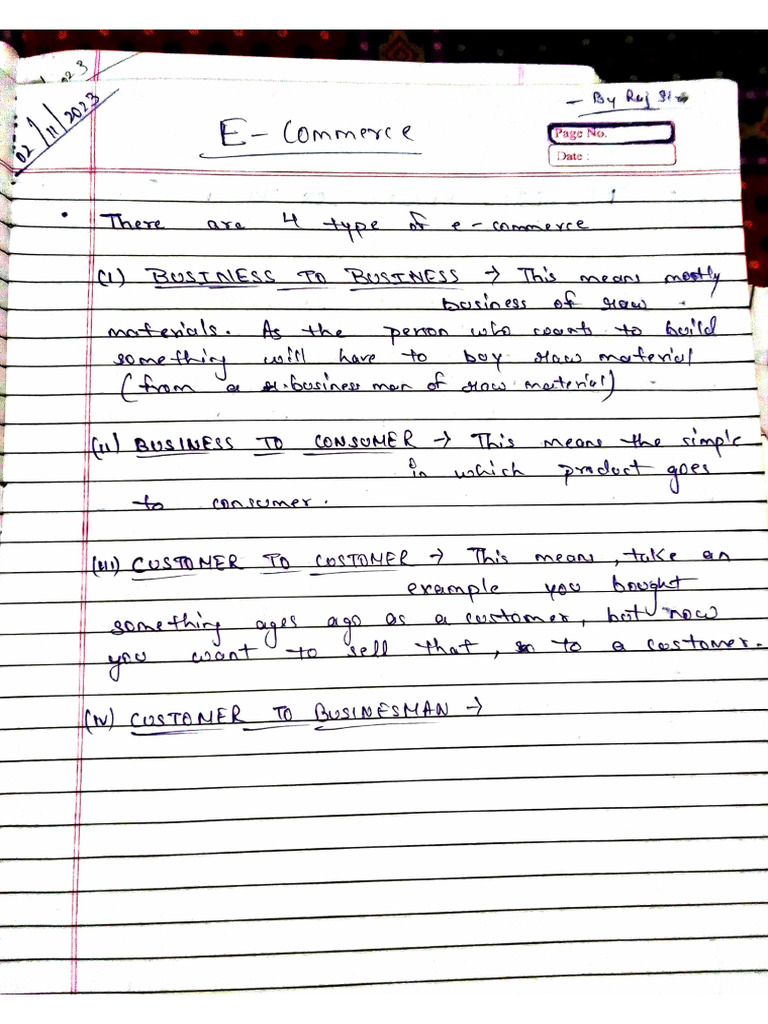 02/11/2023
- By Raj Sir
E-Commerce
Page No.
Date :
• There are 4 type of e-commerce
(I) BUSINESS TO BUSINESS → This means mostly
business of raw
materials. As the person who wants to build
something will have to buy raw material
(from a businessman of raw material)
(II) BUSINESS TO CONSUMER → This means the simple
in which product goes
to consumer.
(III) CUSTOMER TO COSTOMER → This means, take an
example you bought
something ages ago as a customer, but now
you want to sell that, to a costomer.
(IV) CUSTOMER TO BUSINESMAN →